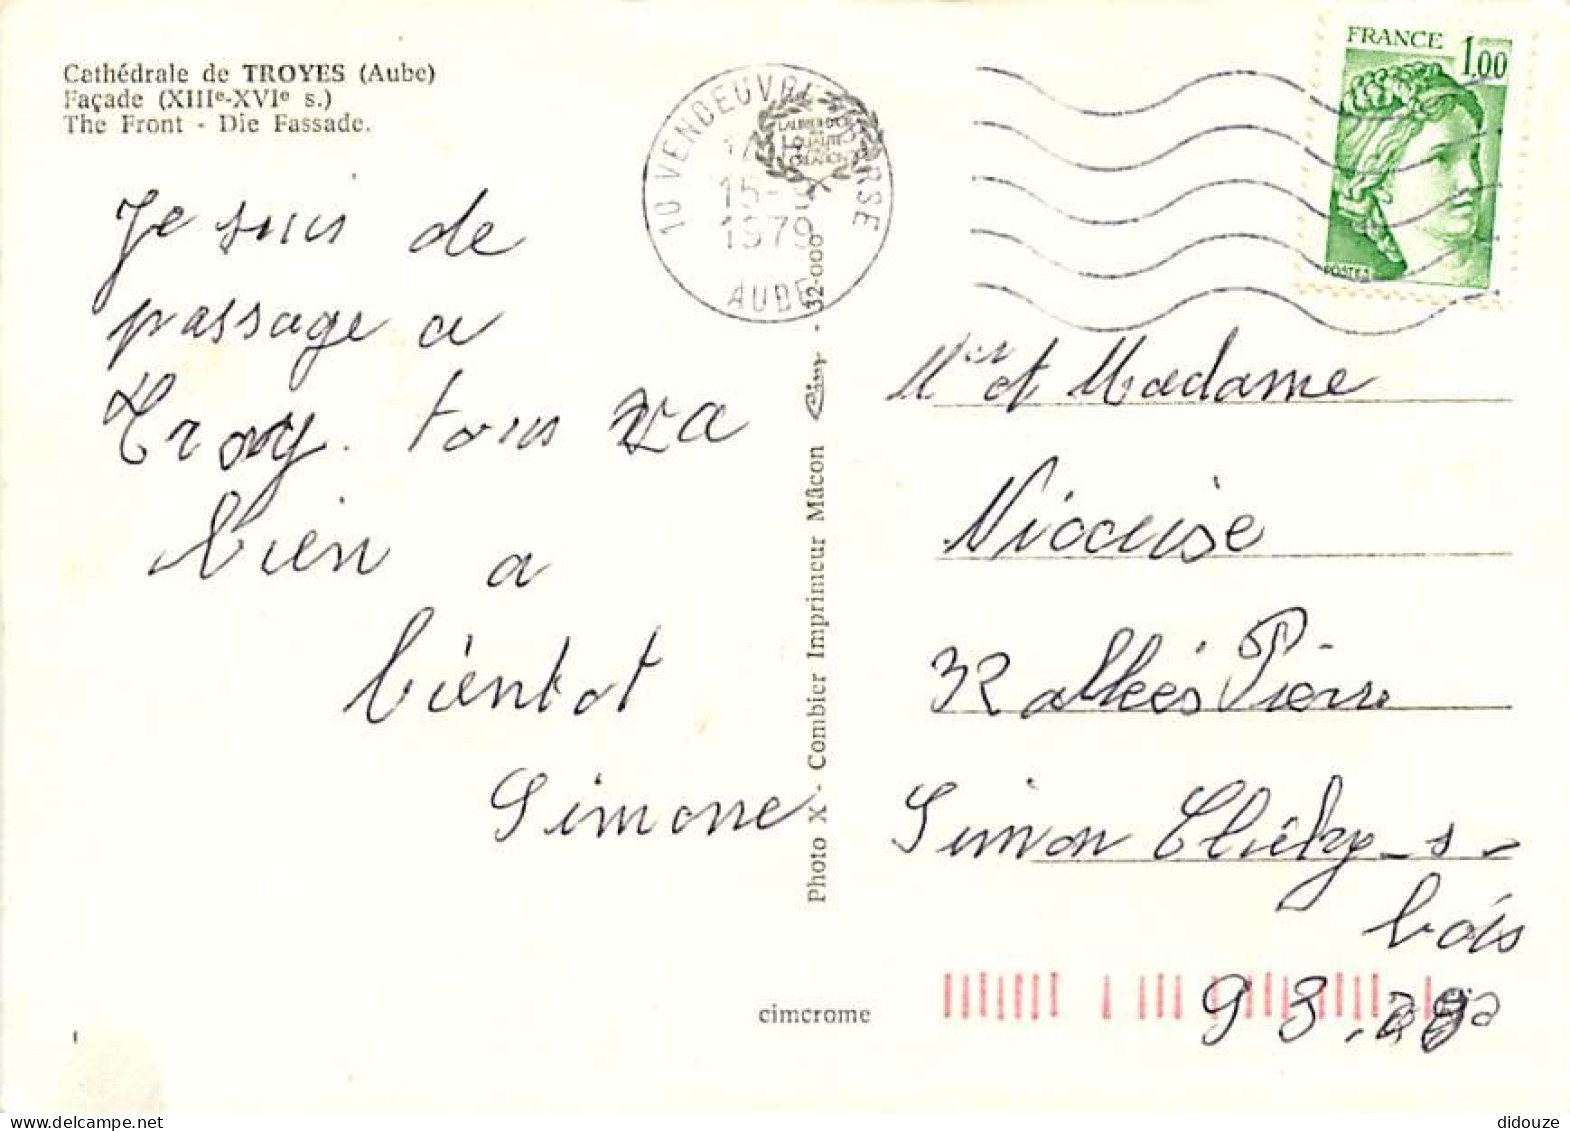 Cathédrale de TROYES (Aube)
Façade (XIIIe-XVIe s.)
The Front - Die Fassade.
Je suis de
passage a
Troy. tous va
bien a
bientot
Simone
10 VENDEUVRE-BARSE
15-9
1979
AUBE
LAURIER D'OR
QUALITE
CREATION
FRANCE 1,00
POSTES
Photo X - Combier Imprimeur Mâcon - 32-000
cimcrome
Mr et Madame
32 allées Pierre
Simon Clichy-s-
bois
93
didouze